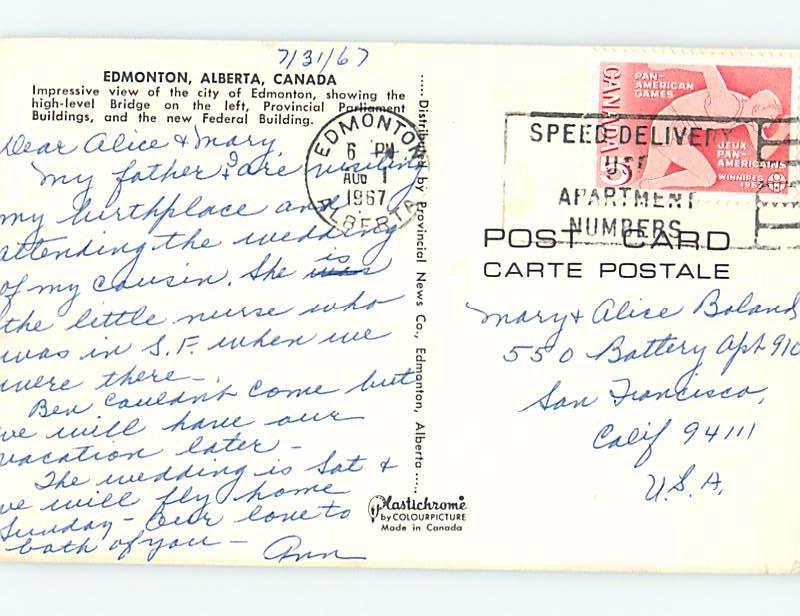 7/31/67
EDMONTON, ALBERTA, CANADA
Impressive view of the city of Edmonton, showing the
high-level Bridge on the left, Provincial Parliament
Buildings, and the new Federal Building.
Dear Alice & Mary,
My father & I are visiting
my birthplace and
attending the wedding
of my cousin. She is
the little nurse who
was in S.F. when we
were there—
Ben couldn't come but
we will have our
vacation later—
The wedding is Sat &
we will fly home
Sunday— Our love to
both of you— Ann
......Distributed by Provincial News Co., Edmonton, Alberta......
Plastichrome
by COLOURPICTURE
Made in Canada
EDMONTON
6 PM
AUG 1
1967
ALBERTA
SPEED DELIVERY
USE
APARTMENT
NUMBERS
CANADA 5
PAN-
AMERICAN
GAMES
JEUX
PAN-
AMERICAINS
WINNIPEG
1967
POST CARD
CARTE POSTALE
Mary & Alice Boland
550 Battery Apt 910
San Francisco,
Calif 94111
U.S.A.